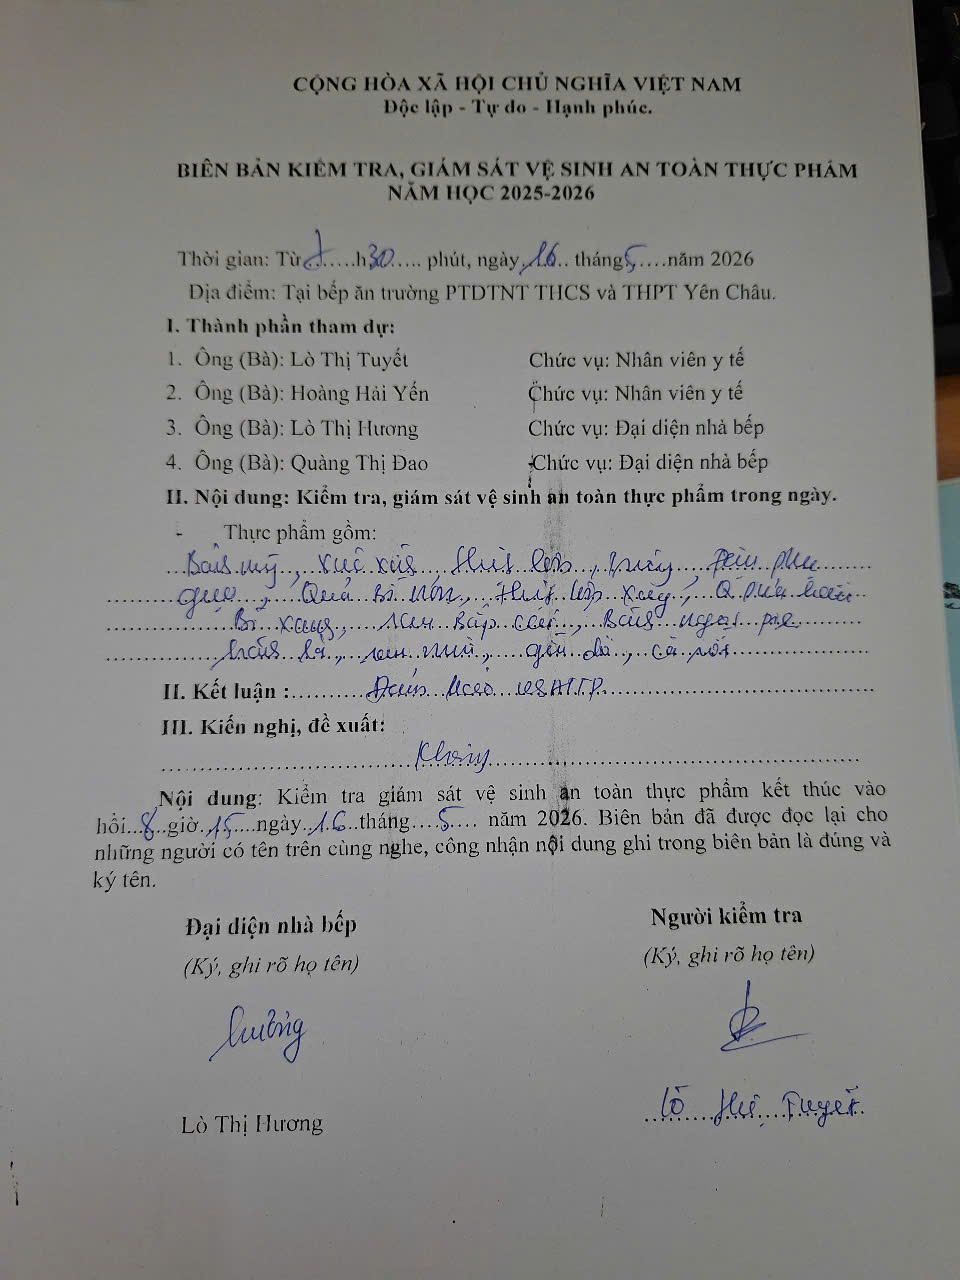 CỘNG HÒA XÃ HỘI CHỦ NGHĨA VIỆT NAM
Độc lập - Tự do - Hạnh phúc.
BIÊN BẢN KIỂM TRA, GIÁM SÁT VỆ SINH AN TOÀN THỰC PHẨM
NĂM HỌC 2025-2026
Thời gian: Từ 7 h 30 phút, ngày 16 tháng 5 năm 2026
Địa điểm: Tại bếp ăn trường PTDTNT THCS và THPT Yên Châu.
I. Thành phần tham dự:
1. Ông (Bà): Lò Thị Tuyết Chức vụ: Nhân viên y tế
2. Ông (Bà): Hoàng Hải Yến Chức vụ: Nhân viên y tế
3. Ông (Bà): Lò Thị Hương Chức vụ: Đại diện nhà bếp
4. Ông (Bà): Quàng Thị Đao Chức vụ: Đại diện nhà bếp
II. Nội dung: Kiểm tra, giám sát vệ sinh an toàn thực phẩm trong ngày.
- Thực phẩm gồm:
Bánh mỹ, xúc xích, thịt lợn, trứng, Đậu phụ
Quả Bí non, thịt lợn xay
Bí xanh, rau Bắp cải, Bánh
cà rốt
II. Kết luận : Đảm bảo VSATTP
III. Kiến nghị, đề xuất:
Không
Nội dung: Kiểm tra giám sát vệ sinh an toàn thực phẩm kết thúc vào
hồi 8 giờ 15 ngày 16 tháng 5 năm 2026. Biên bản đã được đọc lại cho
những người có tên trên cùng nghe, công nhận nội dung ghi trong biên bản là đúng và
ký tên.
Đại diện nhà bếp Người kiểm tra
(Ký, ghi rõ họ tên) (Ký, ghi rõ họ tên)
Hương
Lò Thị Hương Lò Thị Tuyết